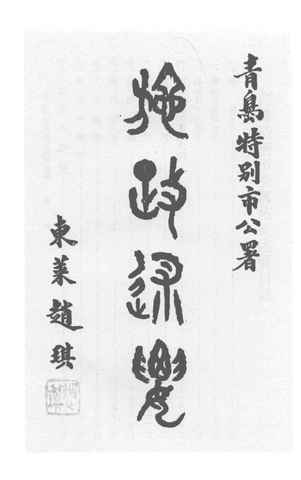 青島特別市公署
施政述要
東萊趙琪